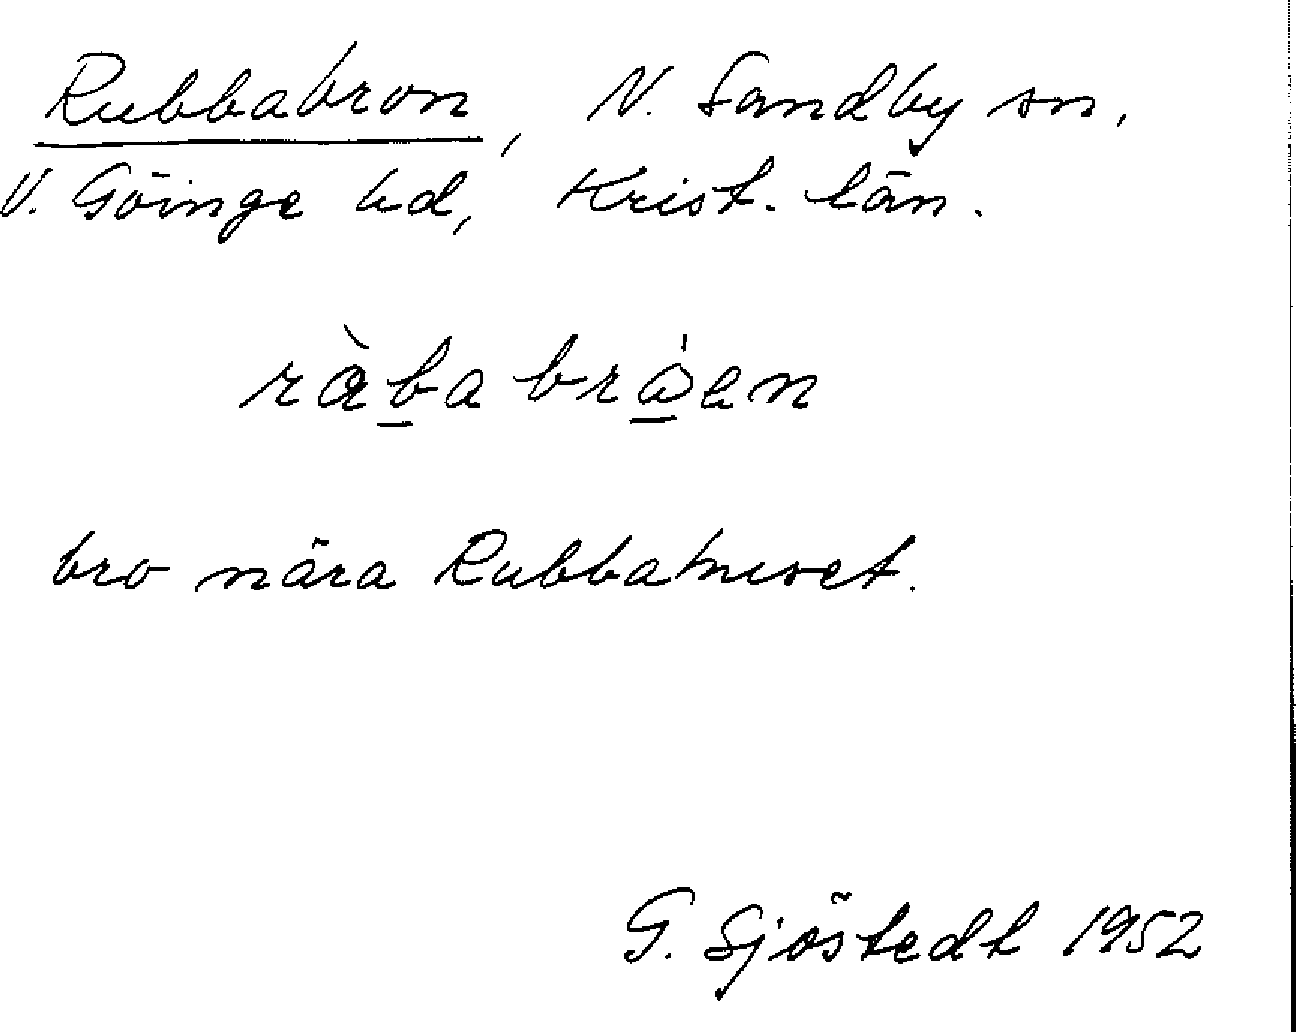 Rubbabron, N. Sandby sn,
V. Göinge hd, Krist. län.
ràba bråen
bro nära Rubbahuset.
G. Sjöstedt 1952